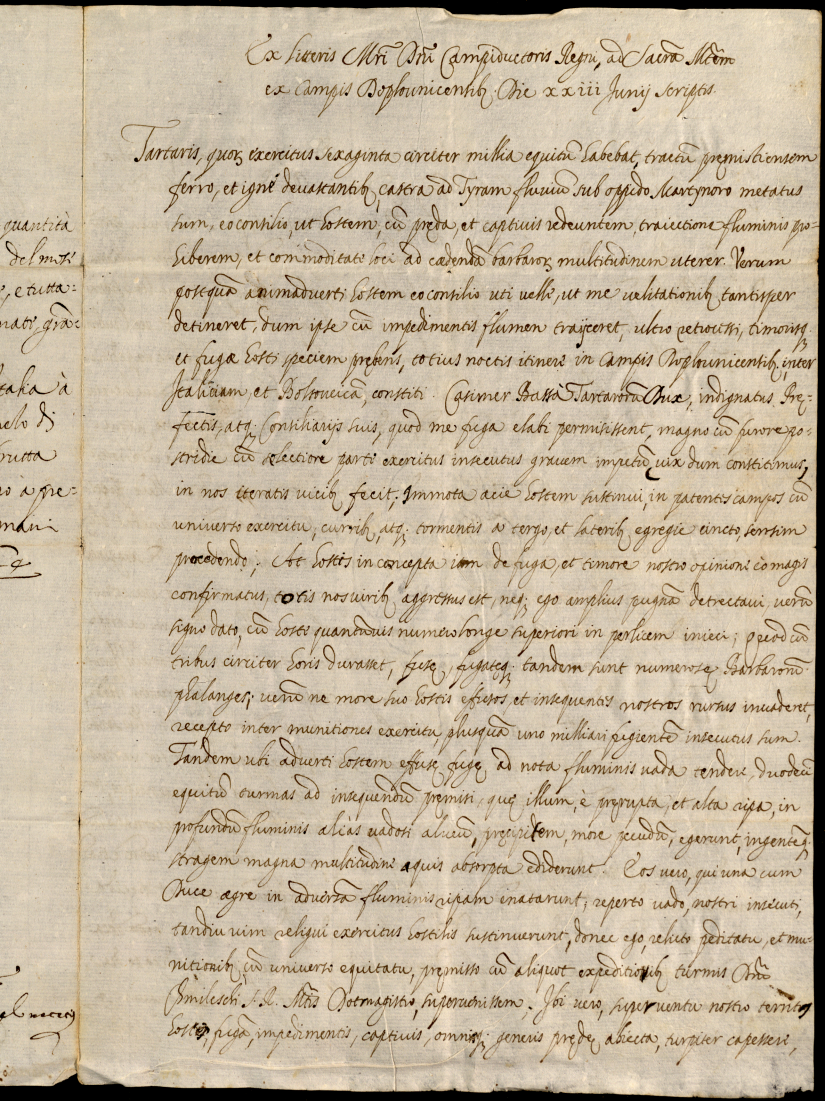 quantità
del mese
, e tutta-
taka à
uelo di
rutta
o à pre-
mani
Ex litteris Mrī Dnī Campiductoris Regni, ad Sacrā Mtēm
ex Campis Boplounicensib9 Die xxiii Junij scriptis.
Tartaris, quorz exercitus sexaginta circiter millia equitū habebat, tractū premistiensem
ferro, et ignē deuastantib9, castra ad Tyram fluuiū sub oppido Martynow metatus
sum, eo consilio, ut hostem, cū preda, et captiuis redeuntem, traiectione fluminis pro-
hiberem, et commoditate loci ad cędendā barbarorz multitudinem uterer. Verum
postquā animaduerti hostem eo consilio uti velle, ut me uelitationib9 tantisper
detineret, dum ipse cū impedimentis flumen traijceret, ultro retrocessi, timorisq3
et fugæ hosti speciem prębens, totius noctis itinere in Campis Boplounicensib9, inter
Haliciam, et Bolszoucā, constiti. Casimer Bassà Tartarorū Dux, indignatus Prę-
fectis, atq3 Consiliarijs suis, quod me fuga elabi permisissent, magno cū furore po-
stridie cū selectiore parte exercitus insecutus grauem impetū, uix dum constitimus,
in nos iteratis vicib9 fecit; Immota acie hostem sustinui, in patentis campos cū
uniuerso exercitu, currib9, atq3 tormentis a tergo, et laterib9 egregie cincto, sensim
procedendo; At hostis in concepta iam de fuga, et timore nostro opinione eo magis
confirmatus, totis nos uirib9 aggressus est, neq3 ego amplius pugnā detrectaui, verū
signo dato, cū hoste quantūuis numero longe superiori in pręlium inieci; quod cū
tribus circiter horis durasset, fusę, fugatęq3 tandem sunt numerosę Barbarorū
phalanges; uerū ne more suo hostis effusos, et insequentis nostros rursus inuaderet,
recepto inter munitiones exercitu, plusquā uno milliari fugientē insecutus sum.
Tandem ubi aduerti hostem effusę fugę ad nota fluminis uada tendere, duodecī
equitū turmas ad insequendū pręmisi, quę illum, è pręrupta, et alta ripa, in
profundū fluminis alias uadosi alueū, pręcipitem, more pecudū, egerunt, ingentēq3
stragem magna multitudine aquis absorpta ediderunt. Eos uero, qui una cum
Duce ægre in aduersā fluminis ripam inatarunt, reperto uado, nostri insecuti,
tandiu uim reliqui exercitus hostilis sustinuerunt, donec ego, relicto peditatu, et mu-
nitionib9, cū uniuerso equitatu, pręmisso cū aliquot expeditiorib9 turmis Dnō
Chmilescki S. R. Mtis Rotmagistro, superuenissem; Ibi uero, superuentu nostro territ9
hostis, fugā, impedimentis, captiuis, omniq3 generis pręda abiecta, turpiter capessere,